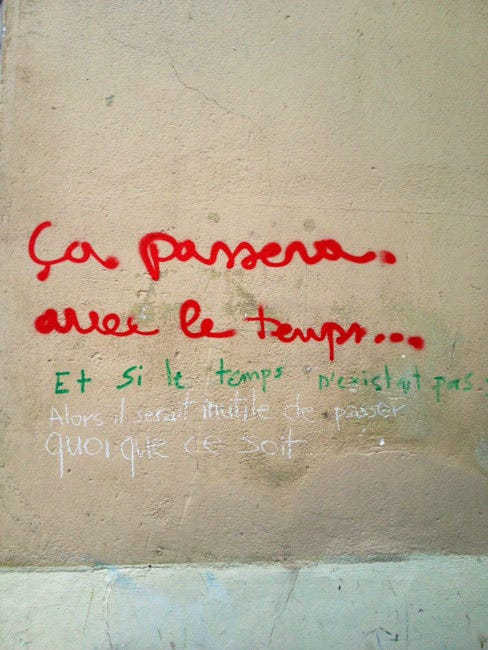 Ça passera
avec le temps...
Et si le temps n'existait pas
Alors il serait inutile de passer
quoi que ce soit